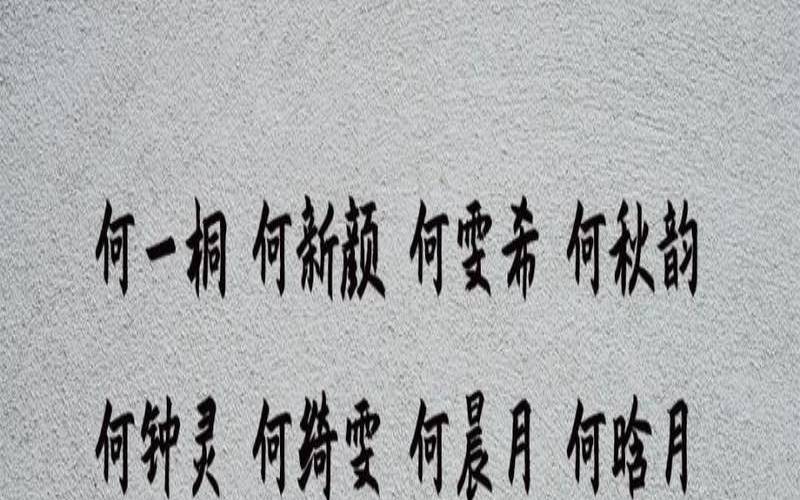 何一桐 何新颜 何雯希 何秋韵
何钟灵 何绮雯 何晨月 何晗月